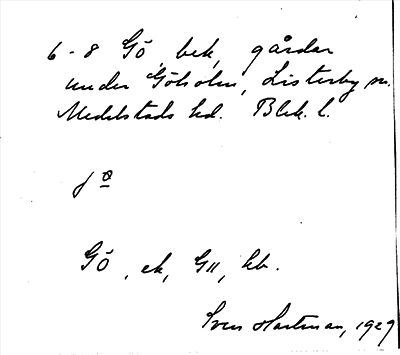 6-8 Gö, bek, gårdar
under Göholm, Listerby sn.
Medelstads hd. Blek. l.
Gö, ek, G11, kb.
Sven Hartman, 1929